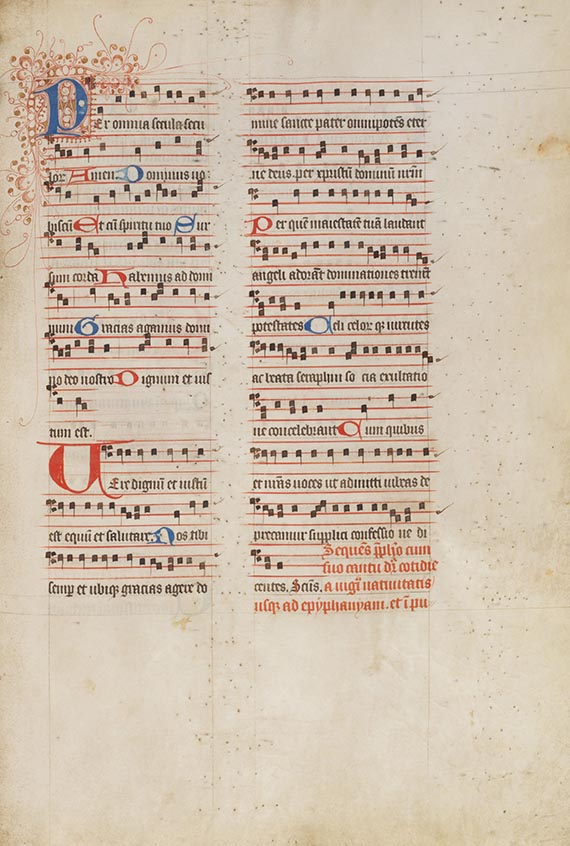 Per omnia secula secu
lor Amen Dominus vo
biscū Et cū spiritu tuo Sur
sum corda Habemus ad domi
num Gracias agamus domi
no deo nostro Dignum et ius
tum est.
Vere dignū et iustū
est equū et salutare. Nos tibi
semp et ubiq gracias agere do
mine sancte pater omnipotēs eter
ne deus per xpristū dominū nr̄m
Per quē maiestatē tuā laudant
angeli adorāt dominationes tremūt
potestates Celi celor q virtutes
ac beata seraphin so cia exultatio
ne concelebrant Cum quibus
et nr̄as voces ut admitti iubeas de
precamur supplici confessio ne di
centes. Scūs.
Sequēs p̄fa͞co cum
suo cantu dr̄ cotidie
a vigi͞ nativitatis
usq ad epyphanyam. et ī pu